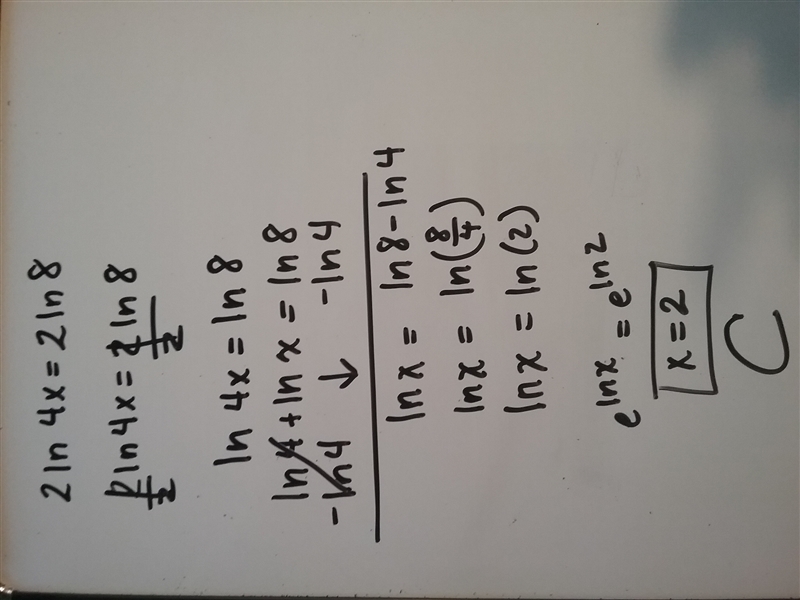 2 ln 4x = 2 ln 8
2 ln 4x = 2 ln 8
2 2
ln 4x = ln 8
ln 4 + ln x = ln 8
- ln 4 ↓ - ln 4
ln x = ln 8 - ln 4
ln x = ln(8/4)
ln x = ln(2)
e^ln x = e^ln 2
x = 2
C